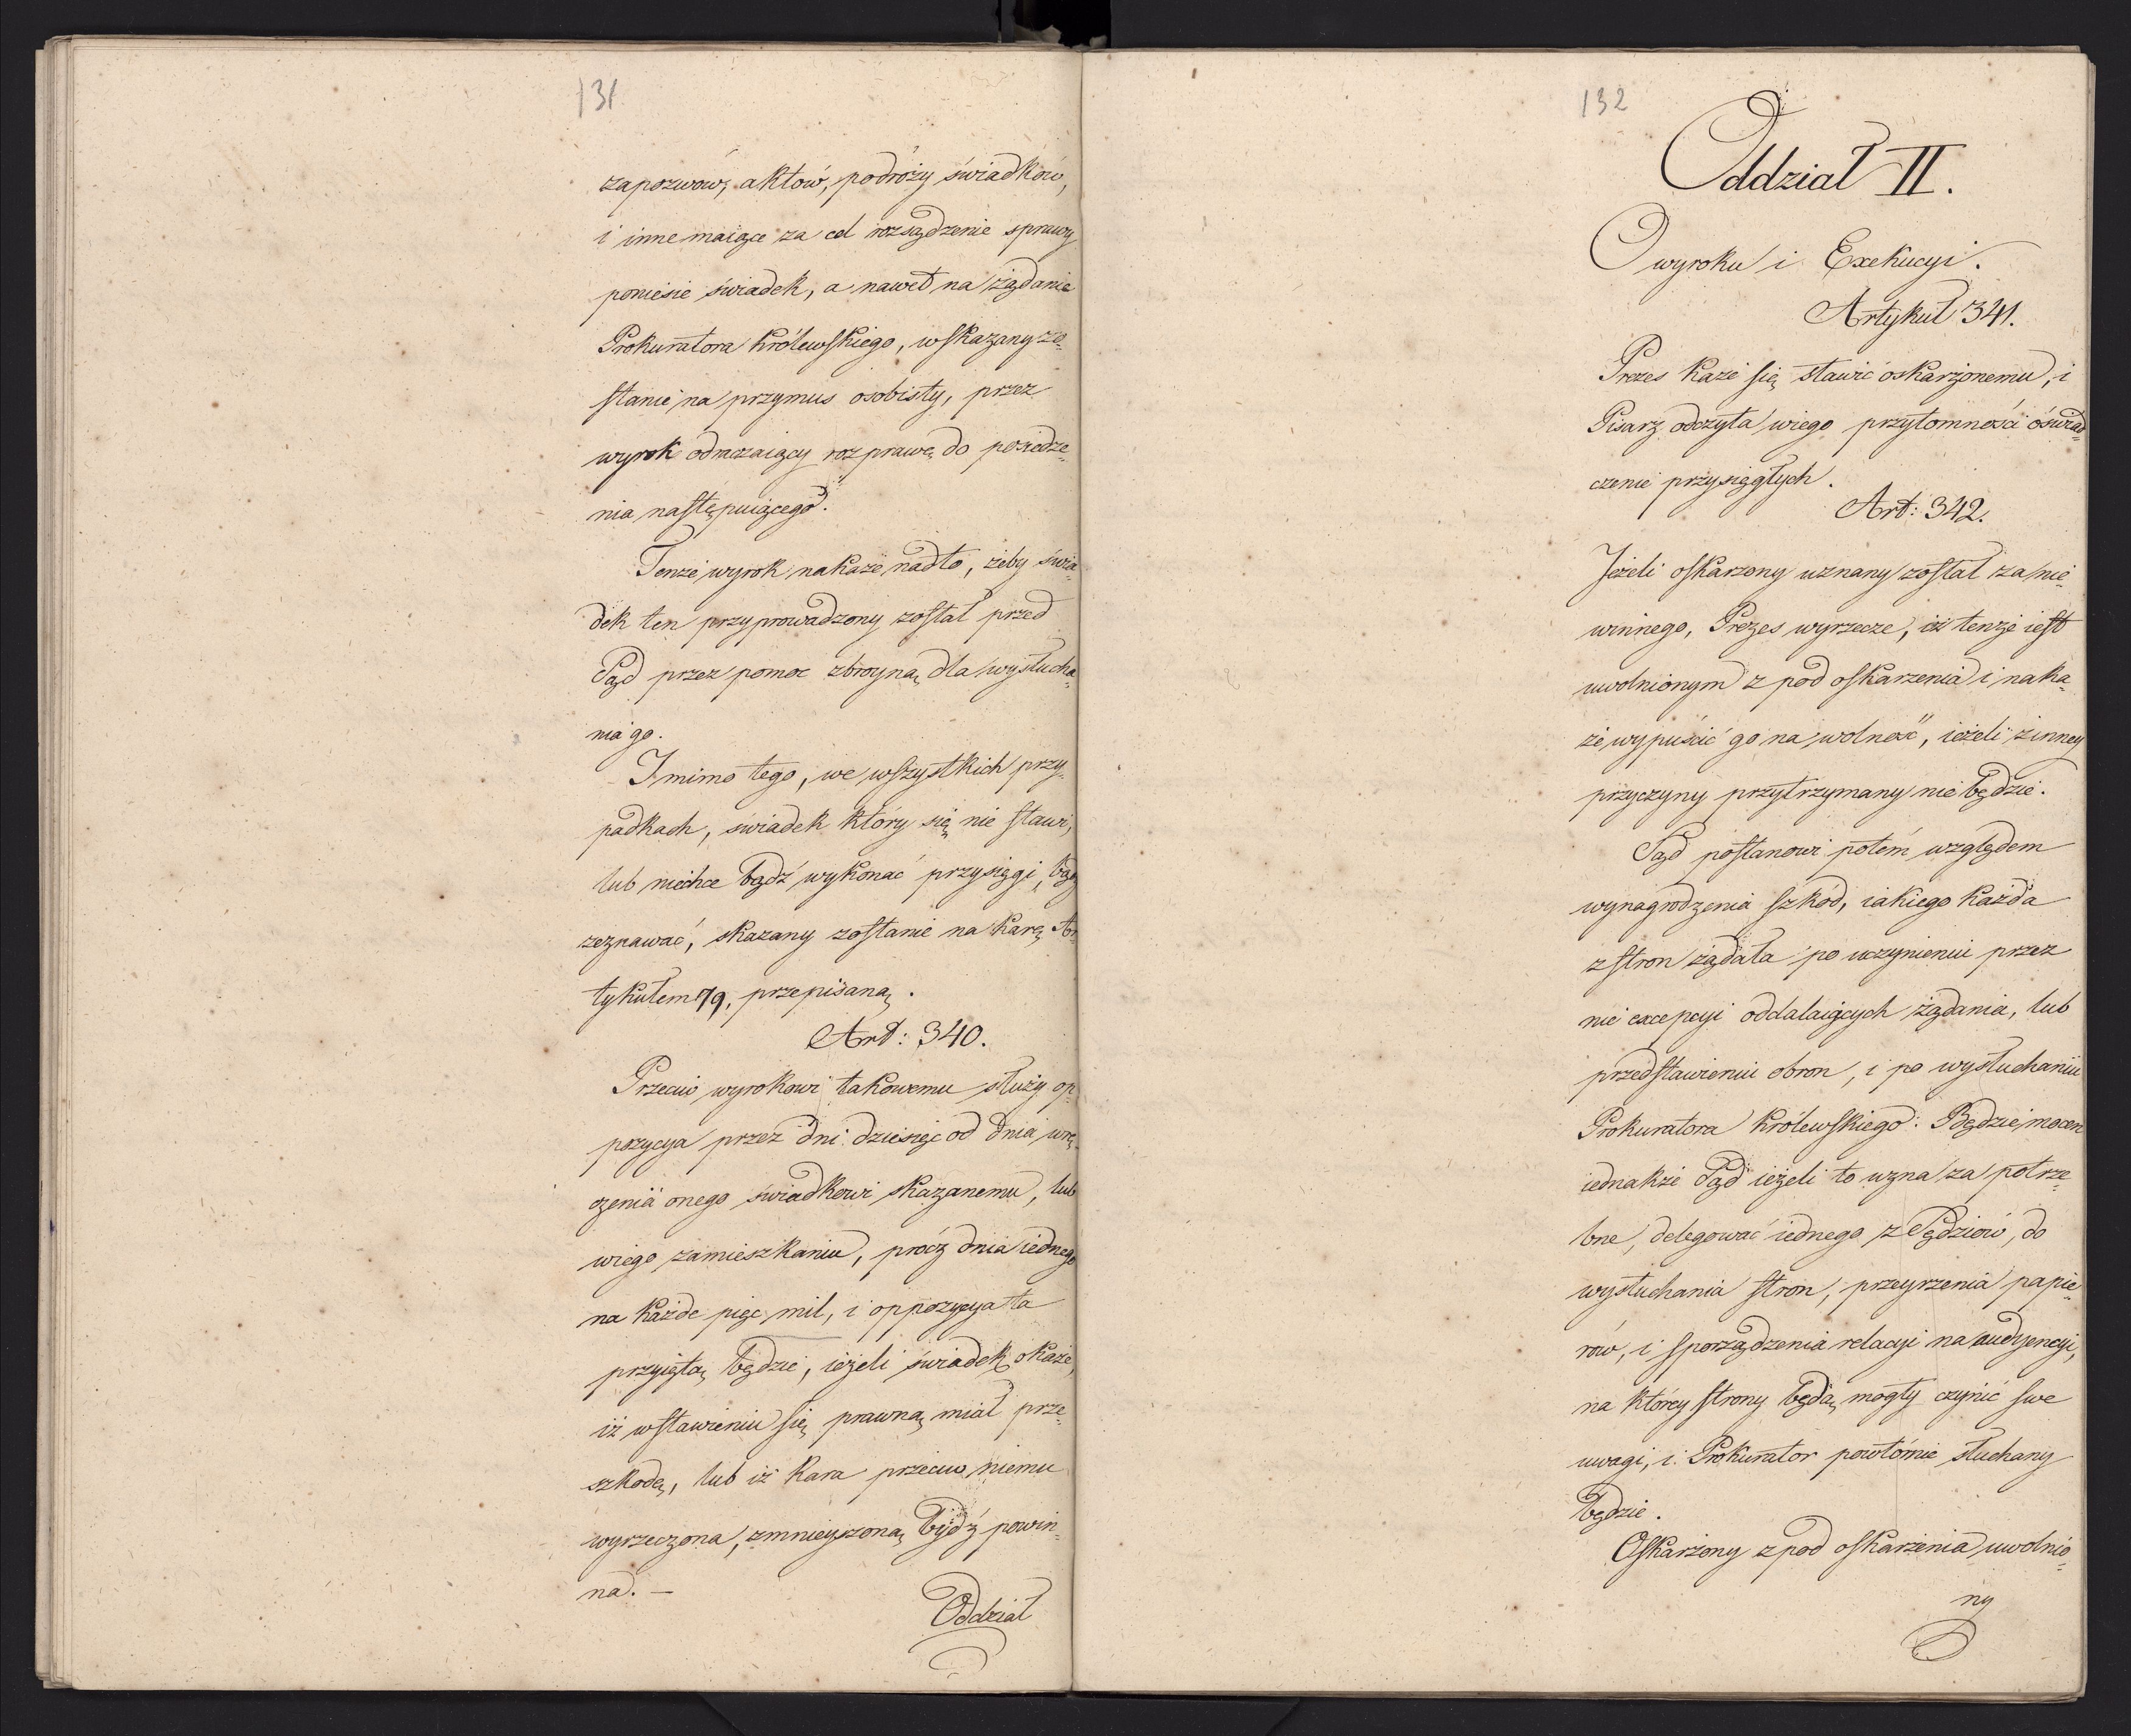 131
zapozwów, aktów, podróży świadków,
i inne maiące za cel rozsądzenie sprawy
poniesie świadek, a nawet na żądanie
Prokuratora Królewskiego, wskazany zo-
stanie na przymus osobisty, przez
wyrok odraczaiący rozprawę do posiedze-
nia następuiącego.
Tenże wyrok nakaże nadto, żeby świa-
dek ten przyprowadzony został przed
Sąd przez pomoc zbroyną dla wysłucha-
nia go.
I mimo tego, we wszystkich przy-
padkach, świadek który się nie stawi,
lub niechce bądź wykonać przysięgi, bądź
zeznawać, skazany zostanie na karę Ar-
tykułem 79. przepisaną.
Art: 340.
Przeciw wyrokowi takowemu służy op-
pozycya przez dni dziesięć od dnia wrę-
czenia onego świadkowi skazanemu, lub
wiego zamieszkaniu, prócz dnia iednego
na każde pięć mil, i oppozycya ta
przyiętą będzie, ieżeli świadek okaże,
iż wstawieniu się prawną miał prze-
szkodę, lub iż kara przeciw niemu
wyrzeczona, zmnieyszoną bydź powin-
na. —
Oddział
132
Oddział II.
O wyroku i Exekucyi.
Artykuł 341.
Prezes każe się stawić oskarżonemu, i
Pisarz odczyta wiego przytomności oświad-
czenie przysięgłych.
Art: 342.
Jeżeli oskarżony uznany został za nie-
winnego, Prezes wyrzecze, iż tenże iest
uwolnionym z pod oskarzenia i naka-
że wypuścić go na wolność, ieżeli zinney
przyczyny przytrzymany nie będzie.
Sąd postanowi potém względem
wynagrodzenia szkod, iakiego każda
z stron żądała po uczynieniu przez
nie excepcyi oddalaiących żądania, lub
przedstawieniu obron, i po wysłuchaniu
Prokuratora Królewskiego: Będzie mocen
iednakże Sąd ieżeli to uzna za potrze-
bne, delegować iednego z Sędziów, do
wysłuchania stron, przeyrzenia papie-
rów, i sporządzenia relacyi na audyencyi,
na którey strony będą mogły czynić swe
uwagi, i Prokurator powtórnie słuchany
będzie.
Oskarżony z pod oskarżenia uwolnio-
ny